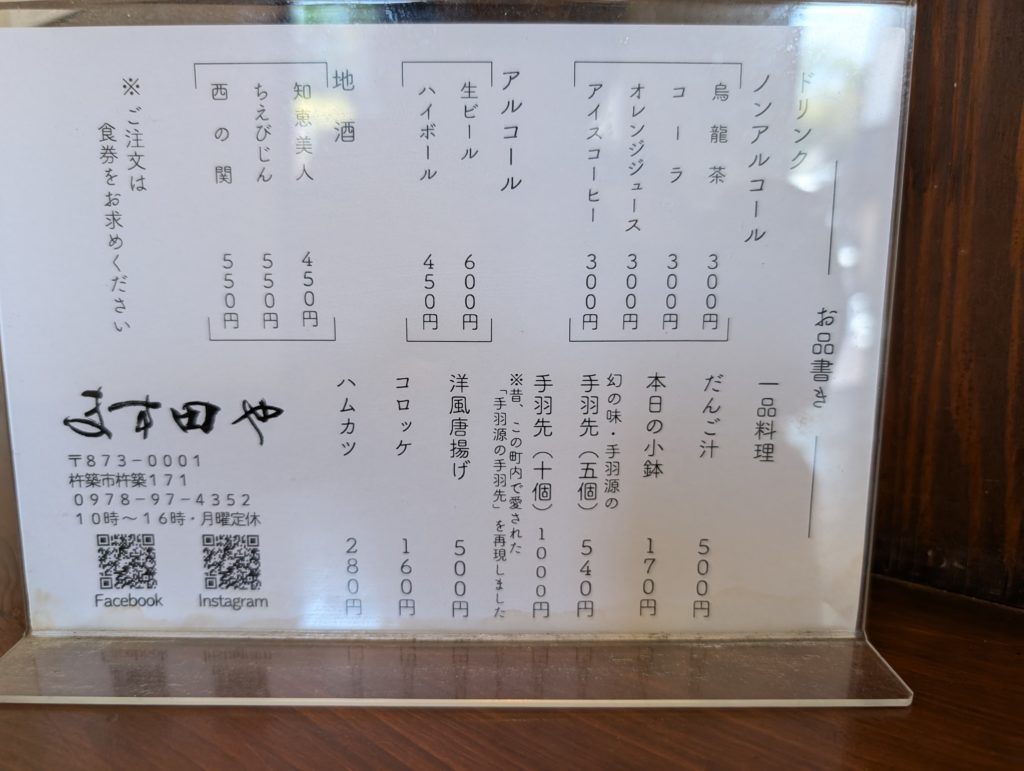 お品書き
ドリンク
ノンアルコール
烏龍茶 300円
コーラ 300円
オレンジジュース 300円
アイスコーヒー 300円
アルコール
生ビール 600円
ハイボール 450円
地酒
知恵美人 450円
ちえびじん 550円
西の関 550円
※ご注文は
食券をお求めください
一品料理
だんご汁 500円
本日の小鉢 170円
幻の味・手羽源の
手羽先（五個） 540円
手羽先（十個） 1000円
※昔、この町内で愛された
「手羽源の手羽先」を再現しました
洋風唐揚げ 500円
コロッケ 160円
ハムカツ 280円
ますや田や
〒873-0001
杵築市杵築171
0978-97-4352
10時～16時・月曜定休
Facebook
Instagram